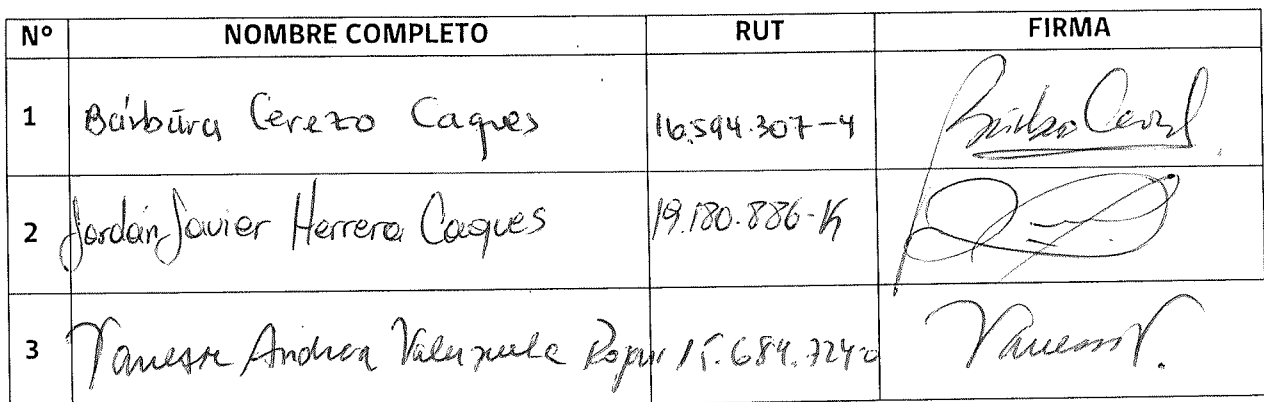 Nº NOMBRE COMPLETO RUT FIRMA
1 Bárbara Cerezo Caques 16.594.307-4
2 Jordán Javier Herrera Caques 19.180.886-K
3 Vanessa Andrea Valenzuela 15.684.724- Vanessa V.